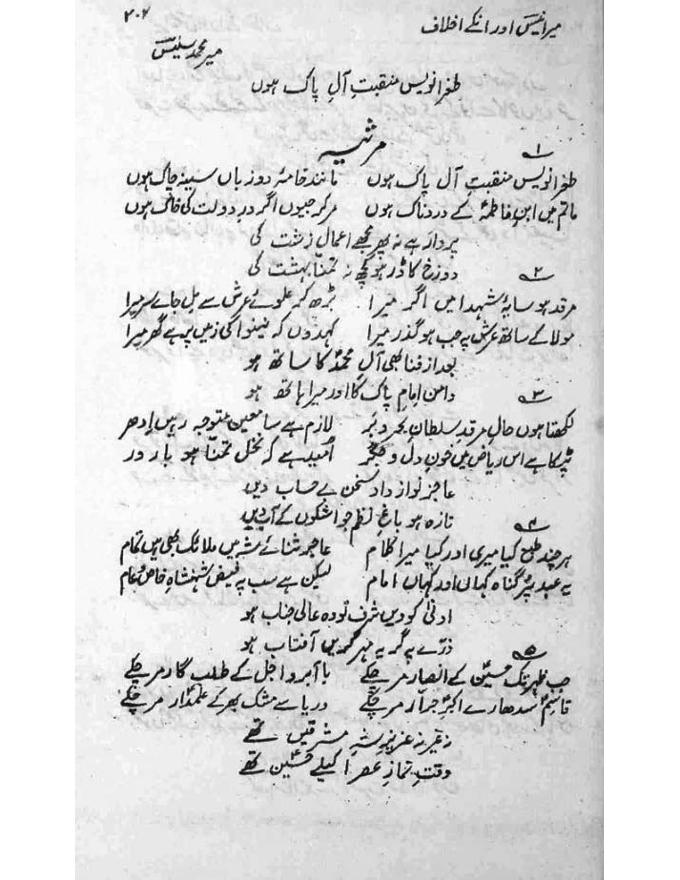 میر انیس اور انکے اخلاف
۲۰۲
میر محمد سلیس
طغرا نویس منقبتِ آلِ پاک ہوں
مرثیہ
۱
طغرا نویس منقبتِ آلِ پاک ہوں مانندِ خامۂ دو زباں سینہ چاک ہوں
ماتم میں ابنِ فاطمہؑ کے دردناک ہوں مرکر جیوں اگر درِ دولت کی خاک ہوں
پروا ہے نہ پھر مجھے اعمالِ زشت کی
دوزخ کا ڈر ہو کچھ نہ تمنا بہشت کی
۲
مرقد ہو سایۂ شہدا میں اگر میرا بڑھ کر علوئے عرش سے مل جائے سر میرا
مولا کے ساتھ عرش پہ جب ہو گذر میرا کہدوں کہ نینوا کی زمیں پر ہے گھر میرا
بعد از فنا بھی آلِ محمدؐ کا ساتھ ہو
دامن امامِ پاک کا اور میرا ہاتھ ہو
۳
لکھتا ہوں حالِ مرقدِ سلطانِ بحر و بر لازم ہے سامعین متوجہ رہیں اِدھر
ٹپکا ہے اس ریاض میں خونِ دل و جگر اُمید ہے کہ نخلِ تمنا ہو بار ور
عاجز نواز دادِ سخن بے حساب دیں
تازہ ہو باغِ نظم جو اشکوں کے آب دیں
۴
ہر چند طبع کیا میری اور کیا میرا کلام عاجز ثنائے شہ میں ملائک بھی ہیں تمام
یہ عبد پُر گناہ کہاں اور کہاں امام لیکن ہے سب پہ فیض شہنشاہِ خاص و عام
ادنیٰ کو دیں شرف تو وہ عالی جناب ہو
ذرّے پہ گر یہ مہر کریں آفتاب ہو
۵
جب ظہر تک حسینؑ کے انصار مر چکے با آبرو اجل کے طلب گار مر چکے
قاسمؑ سدھارے اکبرِؑ جرّار مر چکے دریا سے مشک بھر کے علمدار مر چکے
نہ عزیزِ شہِ مشرقین تھے
وقتِ نمازِ عصر اکیلے حسینؑ تھے